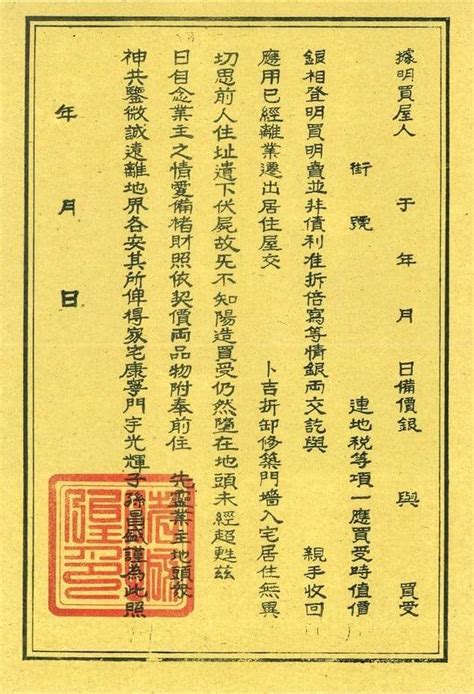 據明買屋人 于 年 月 日備價銀 與 買受
街號 連地稅等項一應買受時值價
銀相登明買明賣並非債利准折倍寫等情銀両交訖與 親手收回
應用已經離業遷出居住屋交 卜吉折卸修築門墻入宅居住無異
切思前人住址遺下伏屍故旡不知陽造買受仍然墮在地頭未經超甦茲
日自念業主之情愛備楮財照依契價両品物附奉前住 先靈業主地頭衆
神共鑒微誠遠離地界各安其所俾得家宅康寧門宇光輝子孫昌盛謹為此照
年 月 日